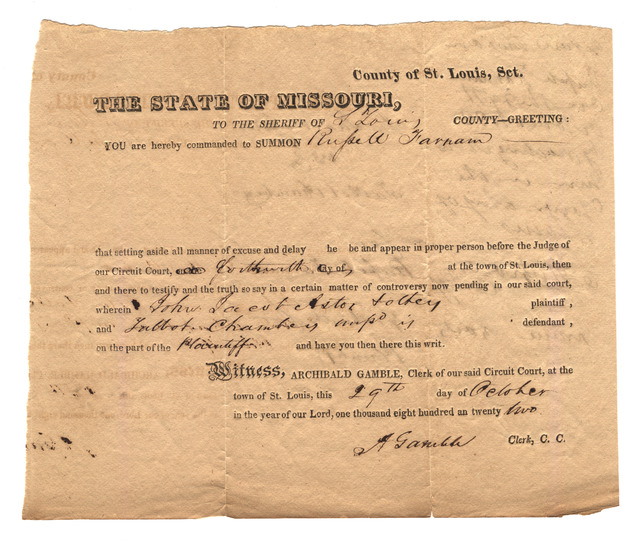 County of St. Louis, Sct.
THE STATE OF MISSOURI,
TO THE SHERIFF OF St Louis COUNTY—GREETING:
YOU are hereby commanded to SUMMON Russell Farnam
that setting aside all manner of excuse and delay he be and appear in proper person before the Judge of
our Circuit Court, Forthwith day of, at the town of St. Louis, then
and there to testify and the truth so say in a certain matter of controversy now pending in our said court,
wherein John Jacob Astor & others plaintiff,
and Talbot Chambers is defendant,
on the part of the Plaintiff and have you then there this writ.
Witness, ARCHIBALD GAMBLE, Clerk of our said Circuit Court, at the
town of St. Louis, this 29th day of October
in the year of our Lord, one thousand eight hundred an twenty two
A Gamble Clerk, C. C.